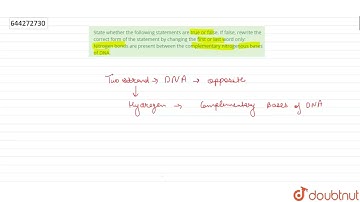 644272730
State whether the following statements are true or false. If false, rewrite the
correct form of the statement by changing the first or last word only:
Nitrogen bonds are present between the complementary nitrogenous bases
of DNA.
Two strand → DNA → opposite
↓
Hydrogen → Complementary Bases of DNA
doubtnut